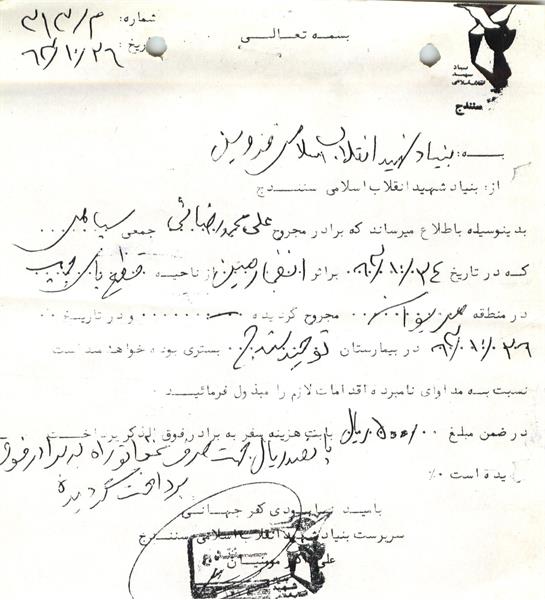 بسمه تعالی
شماره: ۳۱۳/م
تاریخ: ۶۲/۱۰/۲۶
بنیاد شهید انقلاب اسلامی سنندج
به: بنیاد شهید انقلاب اسلامی قزوین
از: بنیاد شهید انقلاب اسلامی سنندج
بدینوسیله باطلاع میرساند که برادر مجروح علی محمد رضائی جمعی
که در تاریخ براثر انفجار مین از ناحیه قطع پای چپ
در منطقه مجروح گردیده و در تاریخ
در بیمارستان توحید سنندج بستری بوده خواهشمند است
نسبت به مداوای نامبرده اقدامات لازم را مبذول فرمائید
در ضمن مبلغ ۵۰۰/۰۰ ریال بابت هزینه سفر به برادر فوق الذکر پرداخت
پانصد ریال جهت به برادر فوق
پرداخت گردیده
یده است ٪
با امید نابودی کفر جهانی
سرپرست بنیاد شهید انقلاب اسلامی سنندج